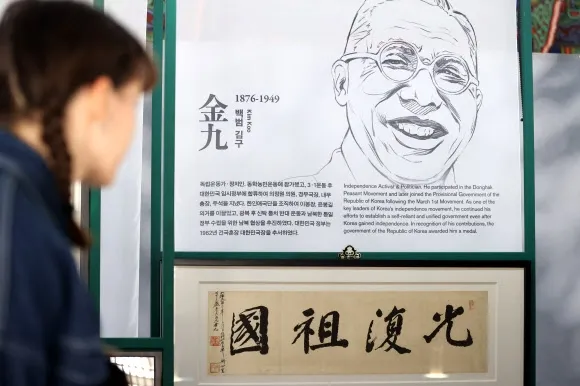 金九
1876-1949
백범 김구
Kim Koo
독립운동가·정치인. 동학농민운동에 참가했고, 3·1운동 후
대한민국 임시정부에 합류하여 의정원 의원, 경무국장, 내무
총장, 주석을 지냈다. 한인애국단을 조직하여 이봉창, 윤봉길
의거를 이끌었고, 광복 후 신탁 통치 반대 운동과 남북한 통일
정부 수립을 위한 남북 협상을 추진하였다. 대한민국 정부는
1962년 건국훈장 대한민국장을 추서하였다.
Independence Activist & Politician. He participated in the Donghak
Peasant Movement and later joined the Provisional Government of the
Republic of Korea following the March 1st Movement. As one of the
key leaders of Korea's independence movement, he continued his
efforts to establish a self-reliant and unified government even after
Korea gained independence. In recognition of his contributions, the
government of the Republic of Korea awarded him a medal.
光復祖國